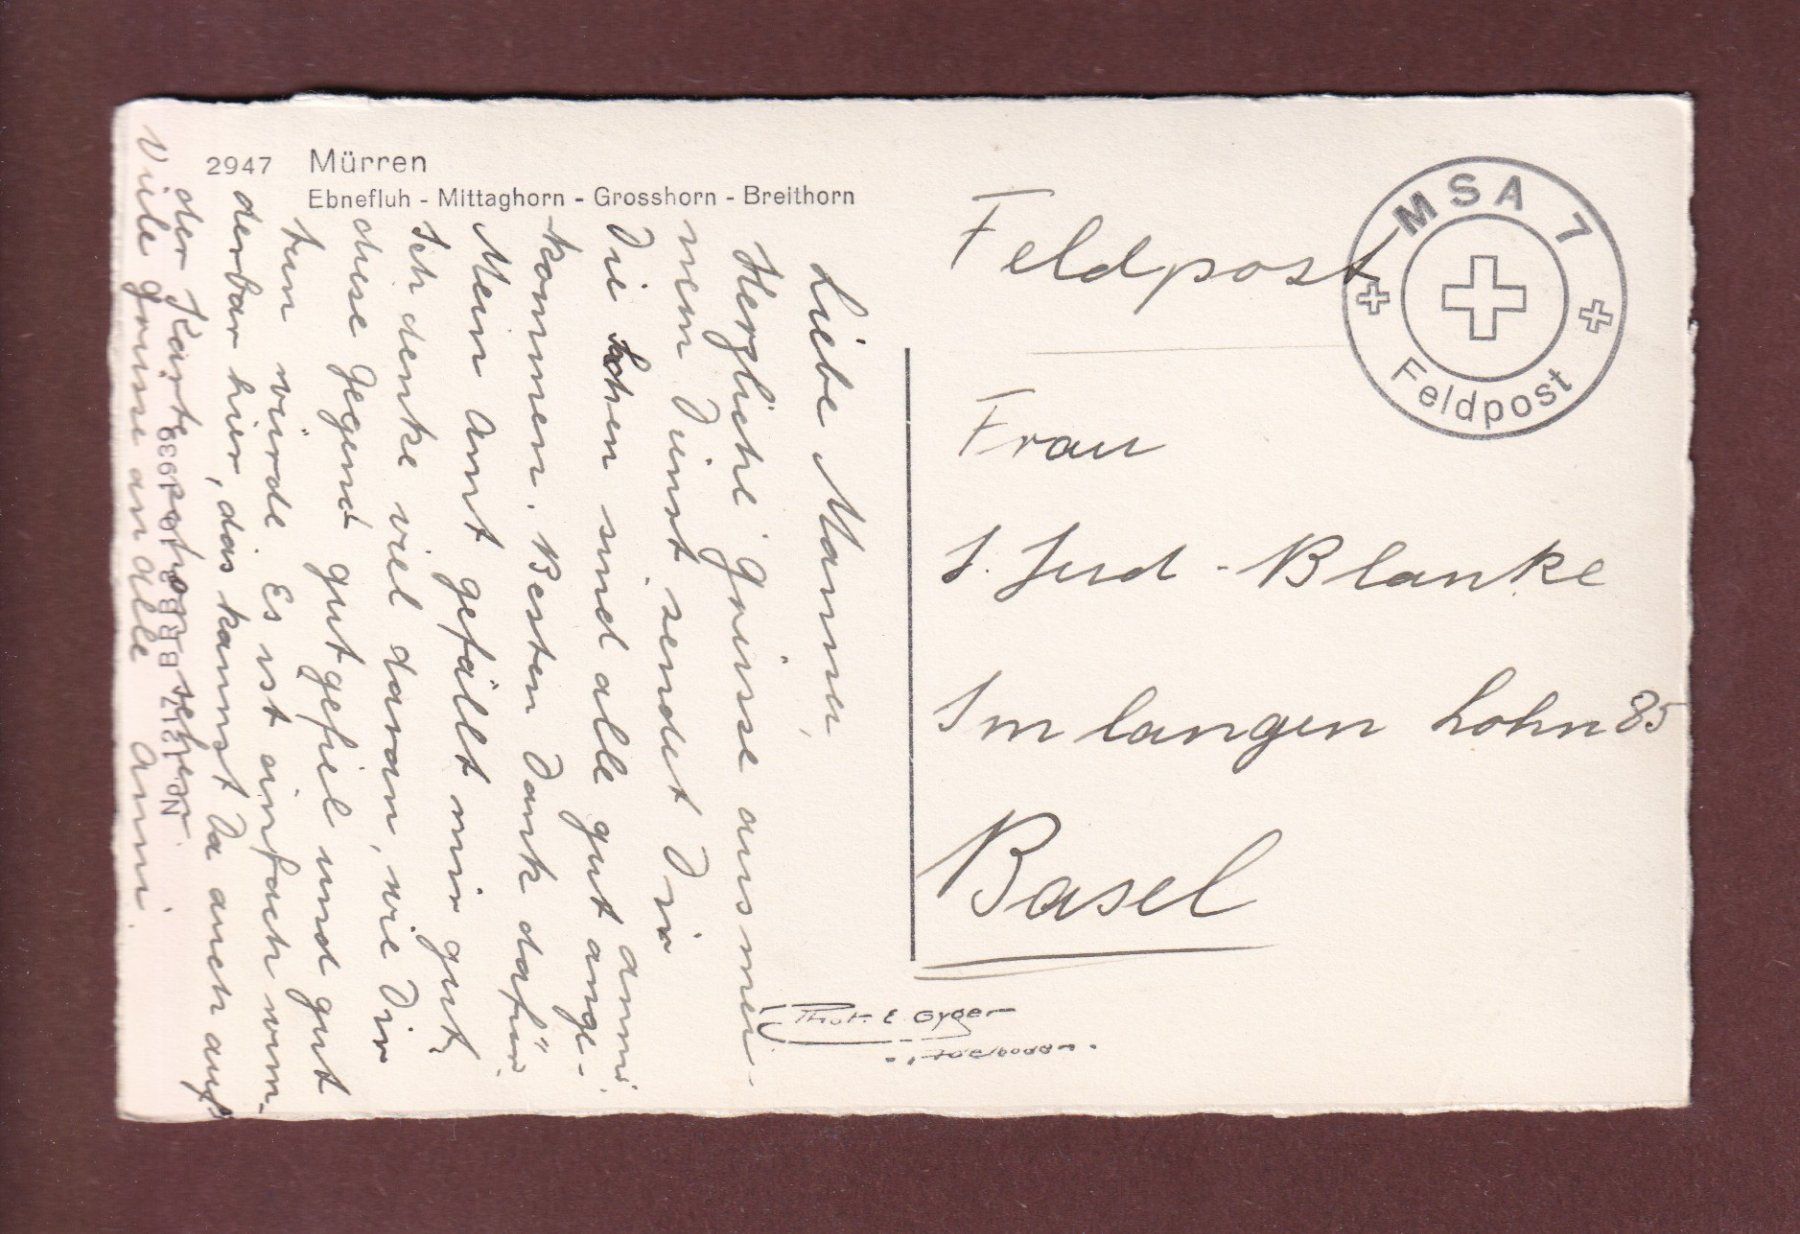 2947 Mürren
Ebnefluh - Mittaghorn - Grosshorn - Breithorn
Liebe Mamma,
Herzliche Grüsse aus mei-
nem Dienst sendet Dir
Anni.
Die Sachen sind alle gut ange-
kommen. Besten Dank dafür.
Mein Amt gefällt mir gut.
Ich denke viel daran, wie Dir
diese Gegend gut gefiel und gut
tun würde. Es ist einfach wun-
derbar hier, das kannst Du auch auf
der Karte schon sehen.
Viele grüsse an alle Anni.
No 1217 B.R.B. 3. 10. 1939
Feldpost
MSA 7
Feldpost
Frau
J. Jud - Blanke
Im langen Lohn 85
Basel
Phot. E. Gyger
Adelboden